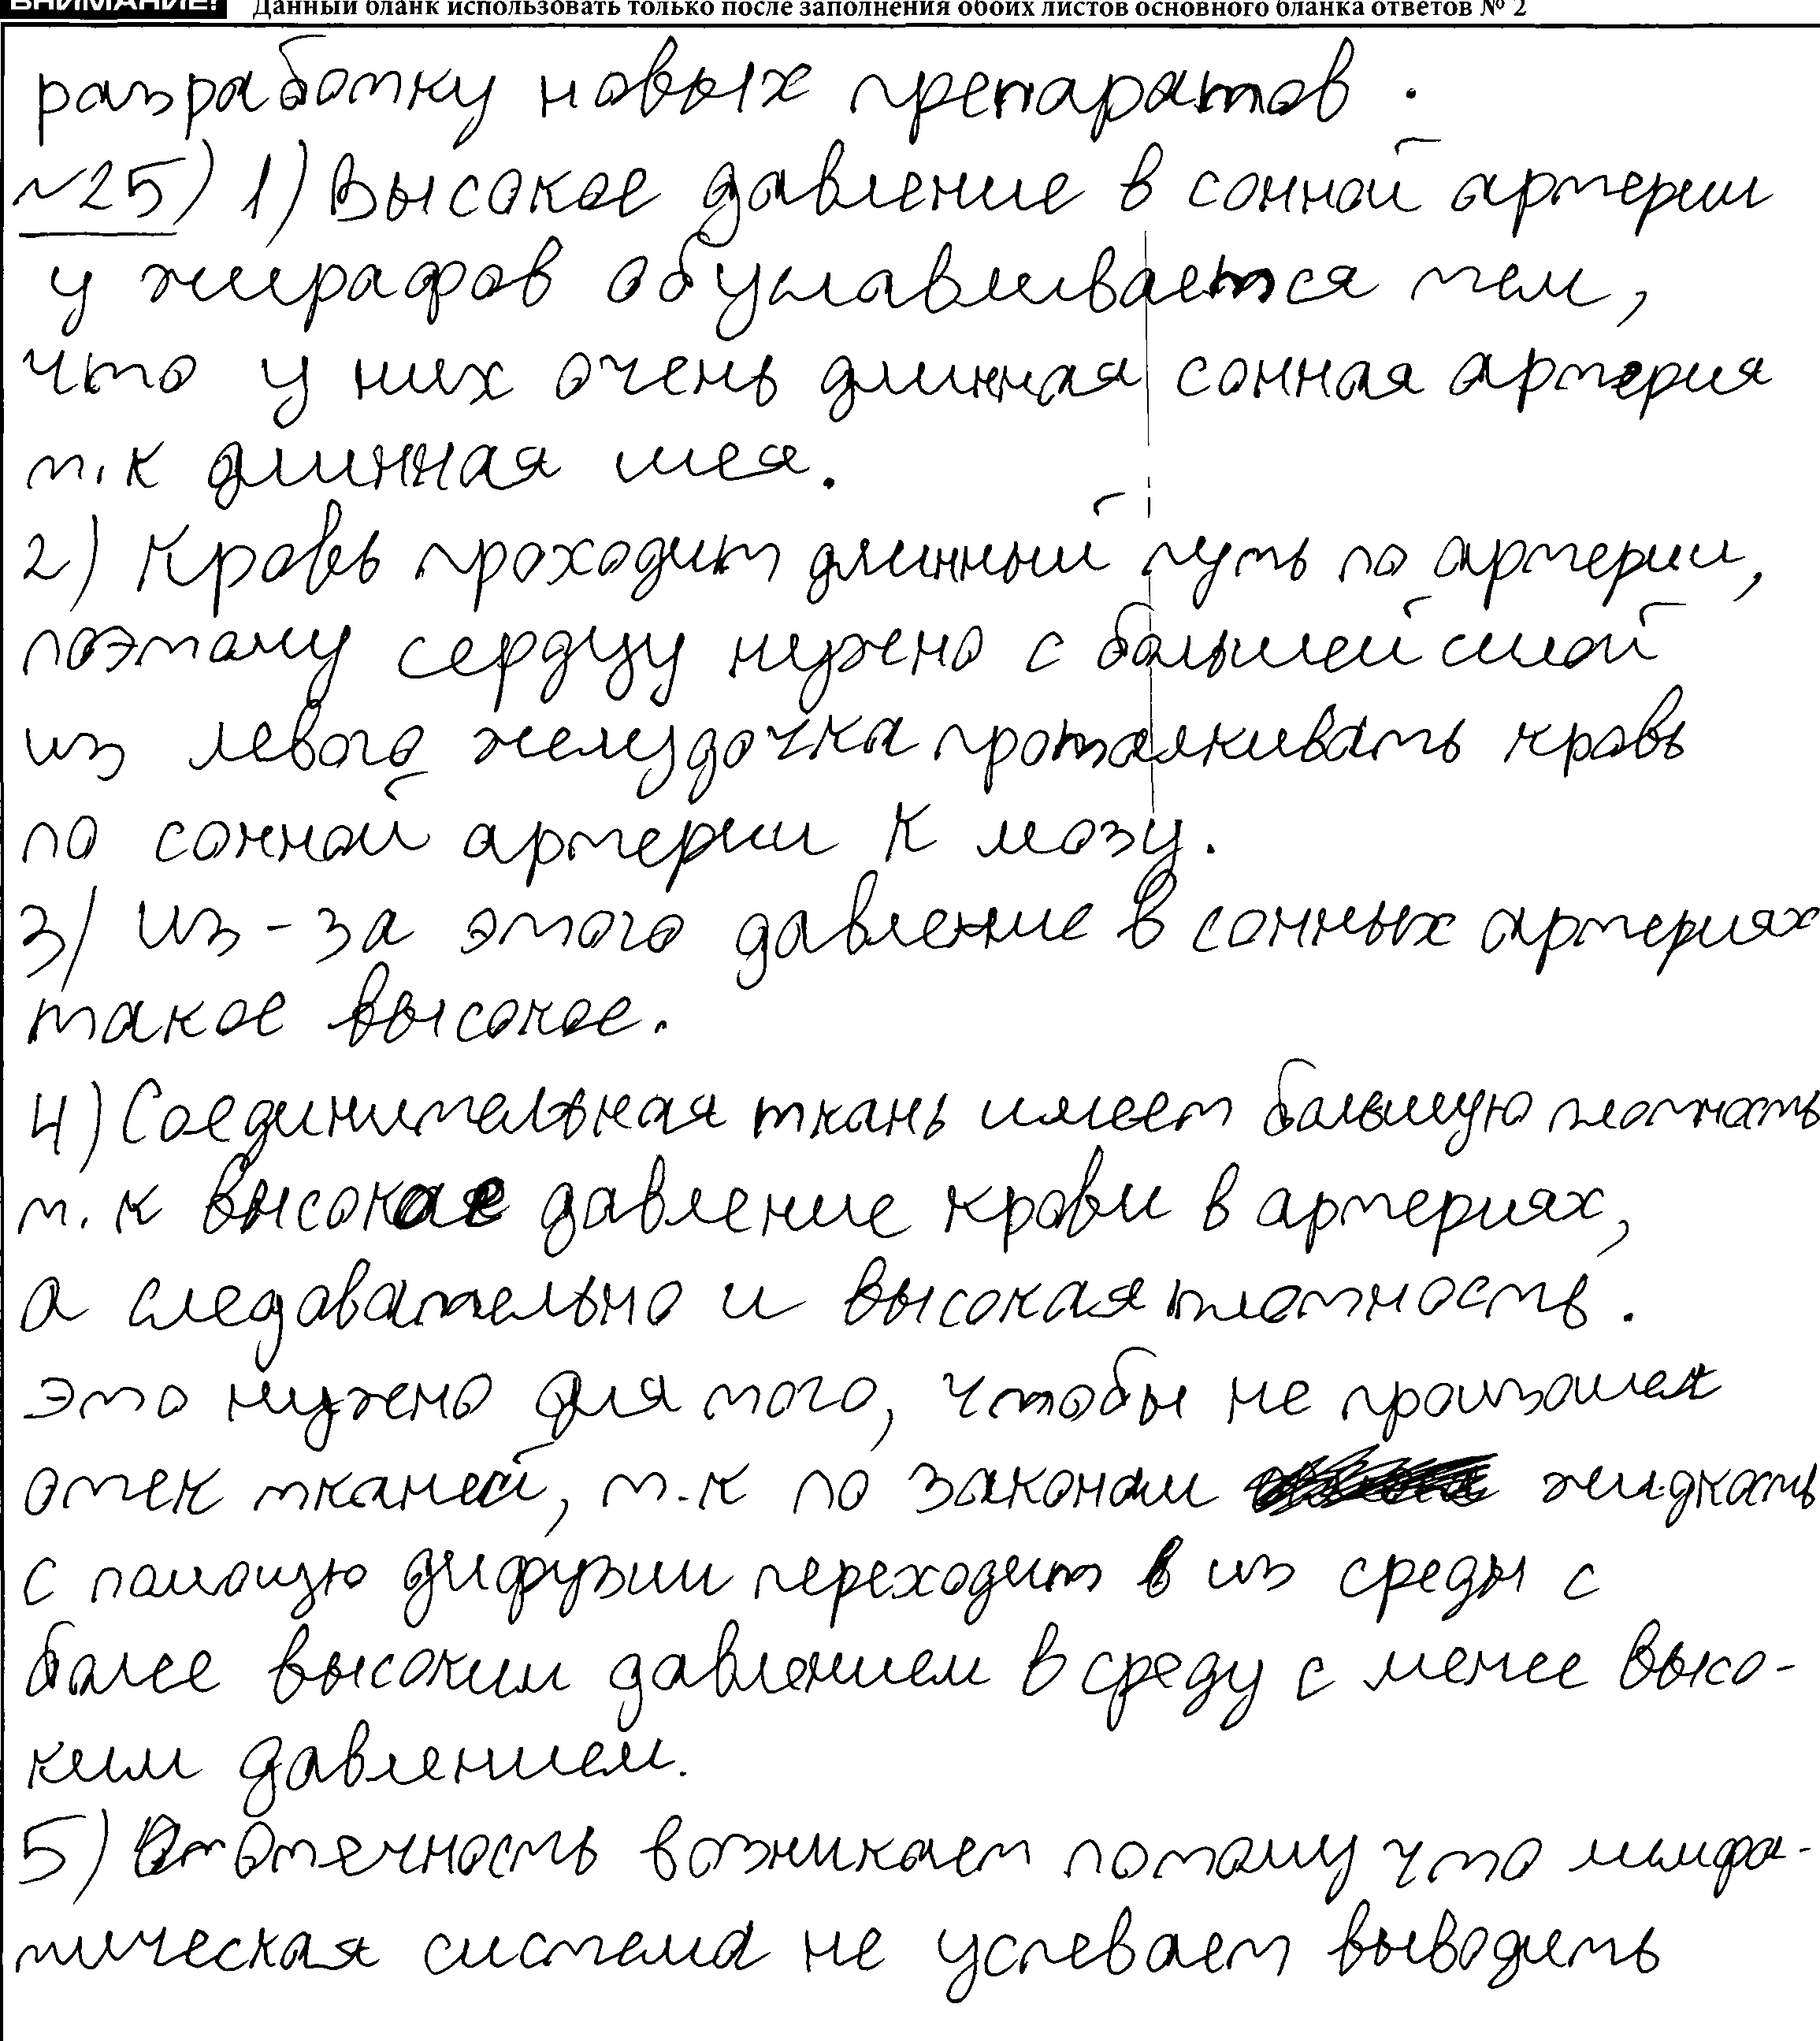 ВНИМАНИЕ! Данный бланк использовать только после заполнения обоих листов основного бланка ответов № 2
разработку новых препаратов.
№25) 1) Высокое давление в сонной артерии
у жирафов обуславливается тем,
что у них очень длинная сонная артерия
т.к длинная шея.
2) Кровь проходит длинный путь по артерии,
поэтому сердцу нужно с большей силой
из левого желудочка проталкивать кровь
по сонной артерии к мозгу.
3) Из-за этого давление в сонных артериях
такое высокое.
4) Соединительная ткань имеет большую плотность
т.к высокое давление крови в артериях,
а следавательно и высокая плотность.
это нужно для того, чтобы не произошел
отек тканей, т.к по законам жидкость
с помощю дифузии переходит в из среды с
более высоким давлением в среду с менее высо-
ким давлением.
5) Отечность возникает потому что лимфа-
тическая система не успевает выводить